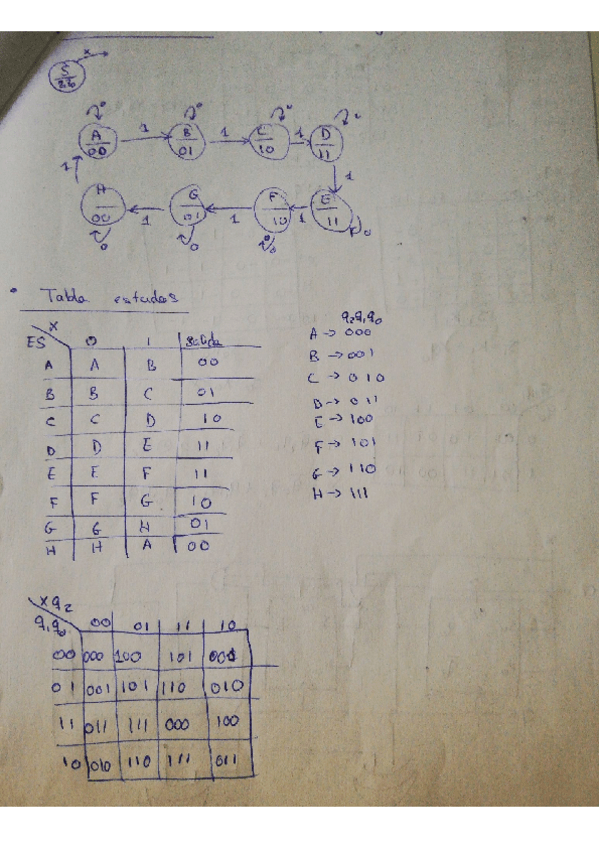 x
S
z₁z₀
0 0 0 0
A 1 B 1 C 1 D
00 01 10 11
1 1
H G F E
00 1 01 1 10 1 11
0 0 0 0
• Tabla estados
x
ES 0 1 Salida
A A B 00
B B C 01
C C D 10
D D E 11
E E F 11
F F G 10
G G H 01
H H A 00
q₂q₁q₀
A → 000
B → 001
C → 010
D → 011
E → 100
F → 101
G → 110
H → 111
x q₂
q₁q₀ 00 01 11 10
00 000 100 101 001
01 001 101 110 010
11 011 111 000 100
10 010 110 111 011